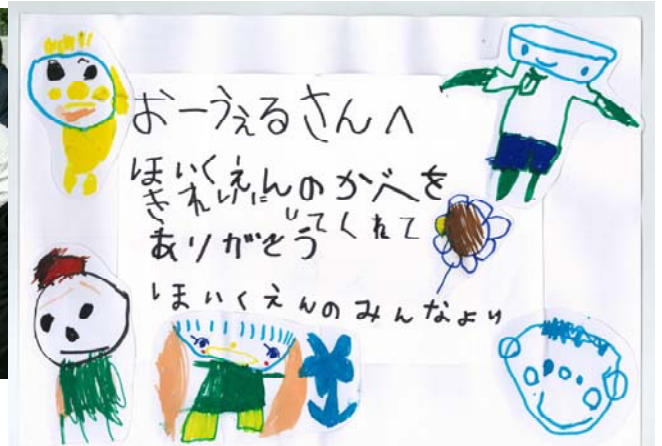 おーうぇるさんへ
ほいくえんのかべを
きれいに してくれて
ありがとう
ほいくえんのみんなより